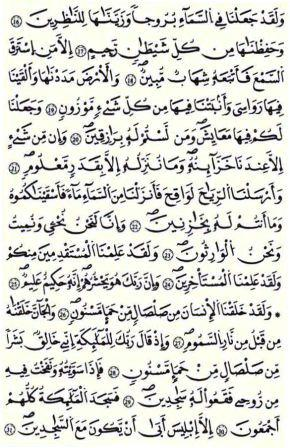 وَلَقَدْ جَعَلْنَا فِي السَّمَاءِ بُرُوجًا وَزَيَّنَّاهَا لِلنَّاظِرِينَ ١٦
وَحَفِظْنَاهَا مِن كُلِّ شَيْطَانٍ رَّجِيمٍ ١٧ إِلَّا مَنِ اسْتَرَقَ
السَّمْعَ فَأَتْبَعَهُ شِهَابٌ مُّبِينٌ ١٨ وَالْأَرْضَ مَدَدْنَاهَا وَأَلْقَيْنَا
فِيهَا رَوَاسِيَ وَأَنبَتْنَا فِيهَا مِن كُلِّ شَيْءٍ مَّوْزُونٍ ١٩ وَجَعَلْنَا
لَكُمْ فِيهَا مَعَايِشَ وَمَن لَّسْتُمْ لَهُ بِرَازِقِينَ ٢٠ وَإِن مِّن شَيْءٍ
إِلَّا عِندَنَا خَزَائِنُهُ وَمَا نُنَزِّلُهُ إِلَّا بِقَدَرٍ مَّعْلُومٍ ٢١
وَأَرْسَلْنَا الرِّيَاحَ لَوَاقِحَ فَأَنزَلْنَا مِنَ السَّمَاءِ مَاءً فَأَسْقَيْنَاكُمُوهُ
وَمَا أَنتُمْ لَهُ بِخَازِنِينَ ٢٢ وَإِنَّا لَنَحْنُ نُحْيِي وَنُمِيتُ
وَنَحْنُ الْوَارِثُونَ ٢٣ وَلَقَدْ عَلِمْنَا الْمُسْتَقْدِمِينَ مِنكُمْ
وَلَقَدْ عَلِمْنَا الْمُسْتَأْخِرِينَ ٢٤ وَإِنَّ رَبَّكَ هُوَ يَحْشُرُهُمْ إِنَّهُ حَكِيمٌ عَلِيمٌ ٢٥
وَلَقَدْ خَلَقْنَا الْإِنسَانَ مِن صَلْصَالٍ مِّنْ حَمَإٍ مَّسْنُونٍ ٢٦ وَالْجَانَّ خَلَقْنَاهُ
مِن قَبْلُ مِن نَّارِ السَّمُومِ ٢٧ وَإِذْ قَالَ رَبُّكَ لِلْمَلَائِكَةِ إِنِّي خَالِقٌ بَشَرًا
مِّن صَلْصَالٍ مِّنْ حَمَإٍ مَّسْنُونٍ ٢٨ فَإِذَا سَوَّيْتُهُ وَنَفَخْتُ فِيهِ
مِن رُّوحِي فَقَعُوا لَهُ سَاجِدِينَ ٢٩ فَسَجَدَ الْمَلَائِكَةُ كُلُّهُمْ
أَجْمَعُونَ ٣٠ إِلَّا إِبْلِيسَ أَبَىٰ أَن يَكُونَ مَعَ السَّاجِدِينَ ٣١